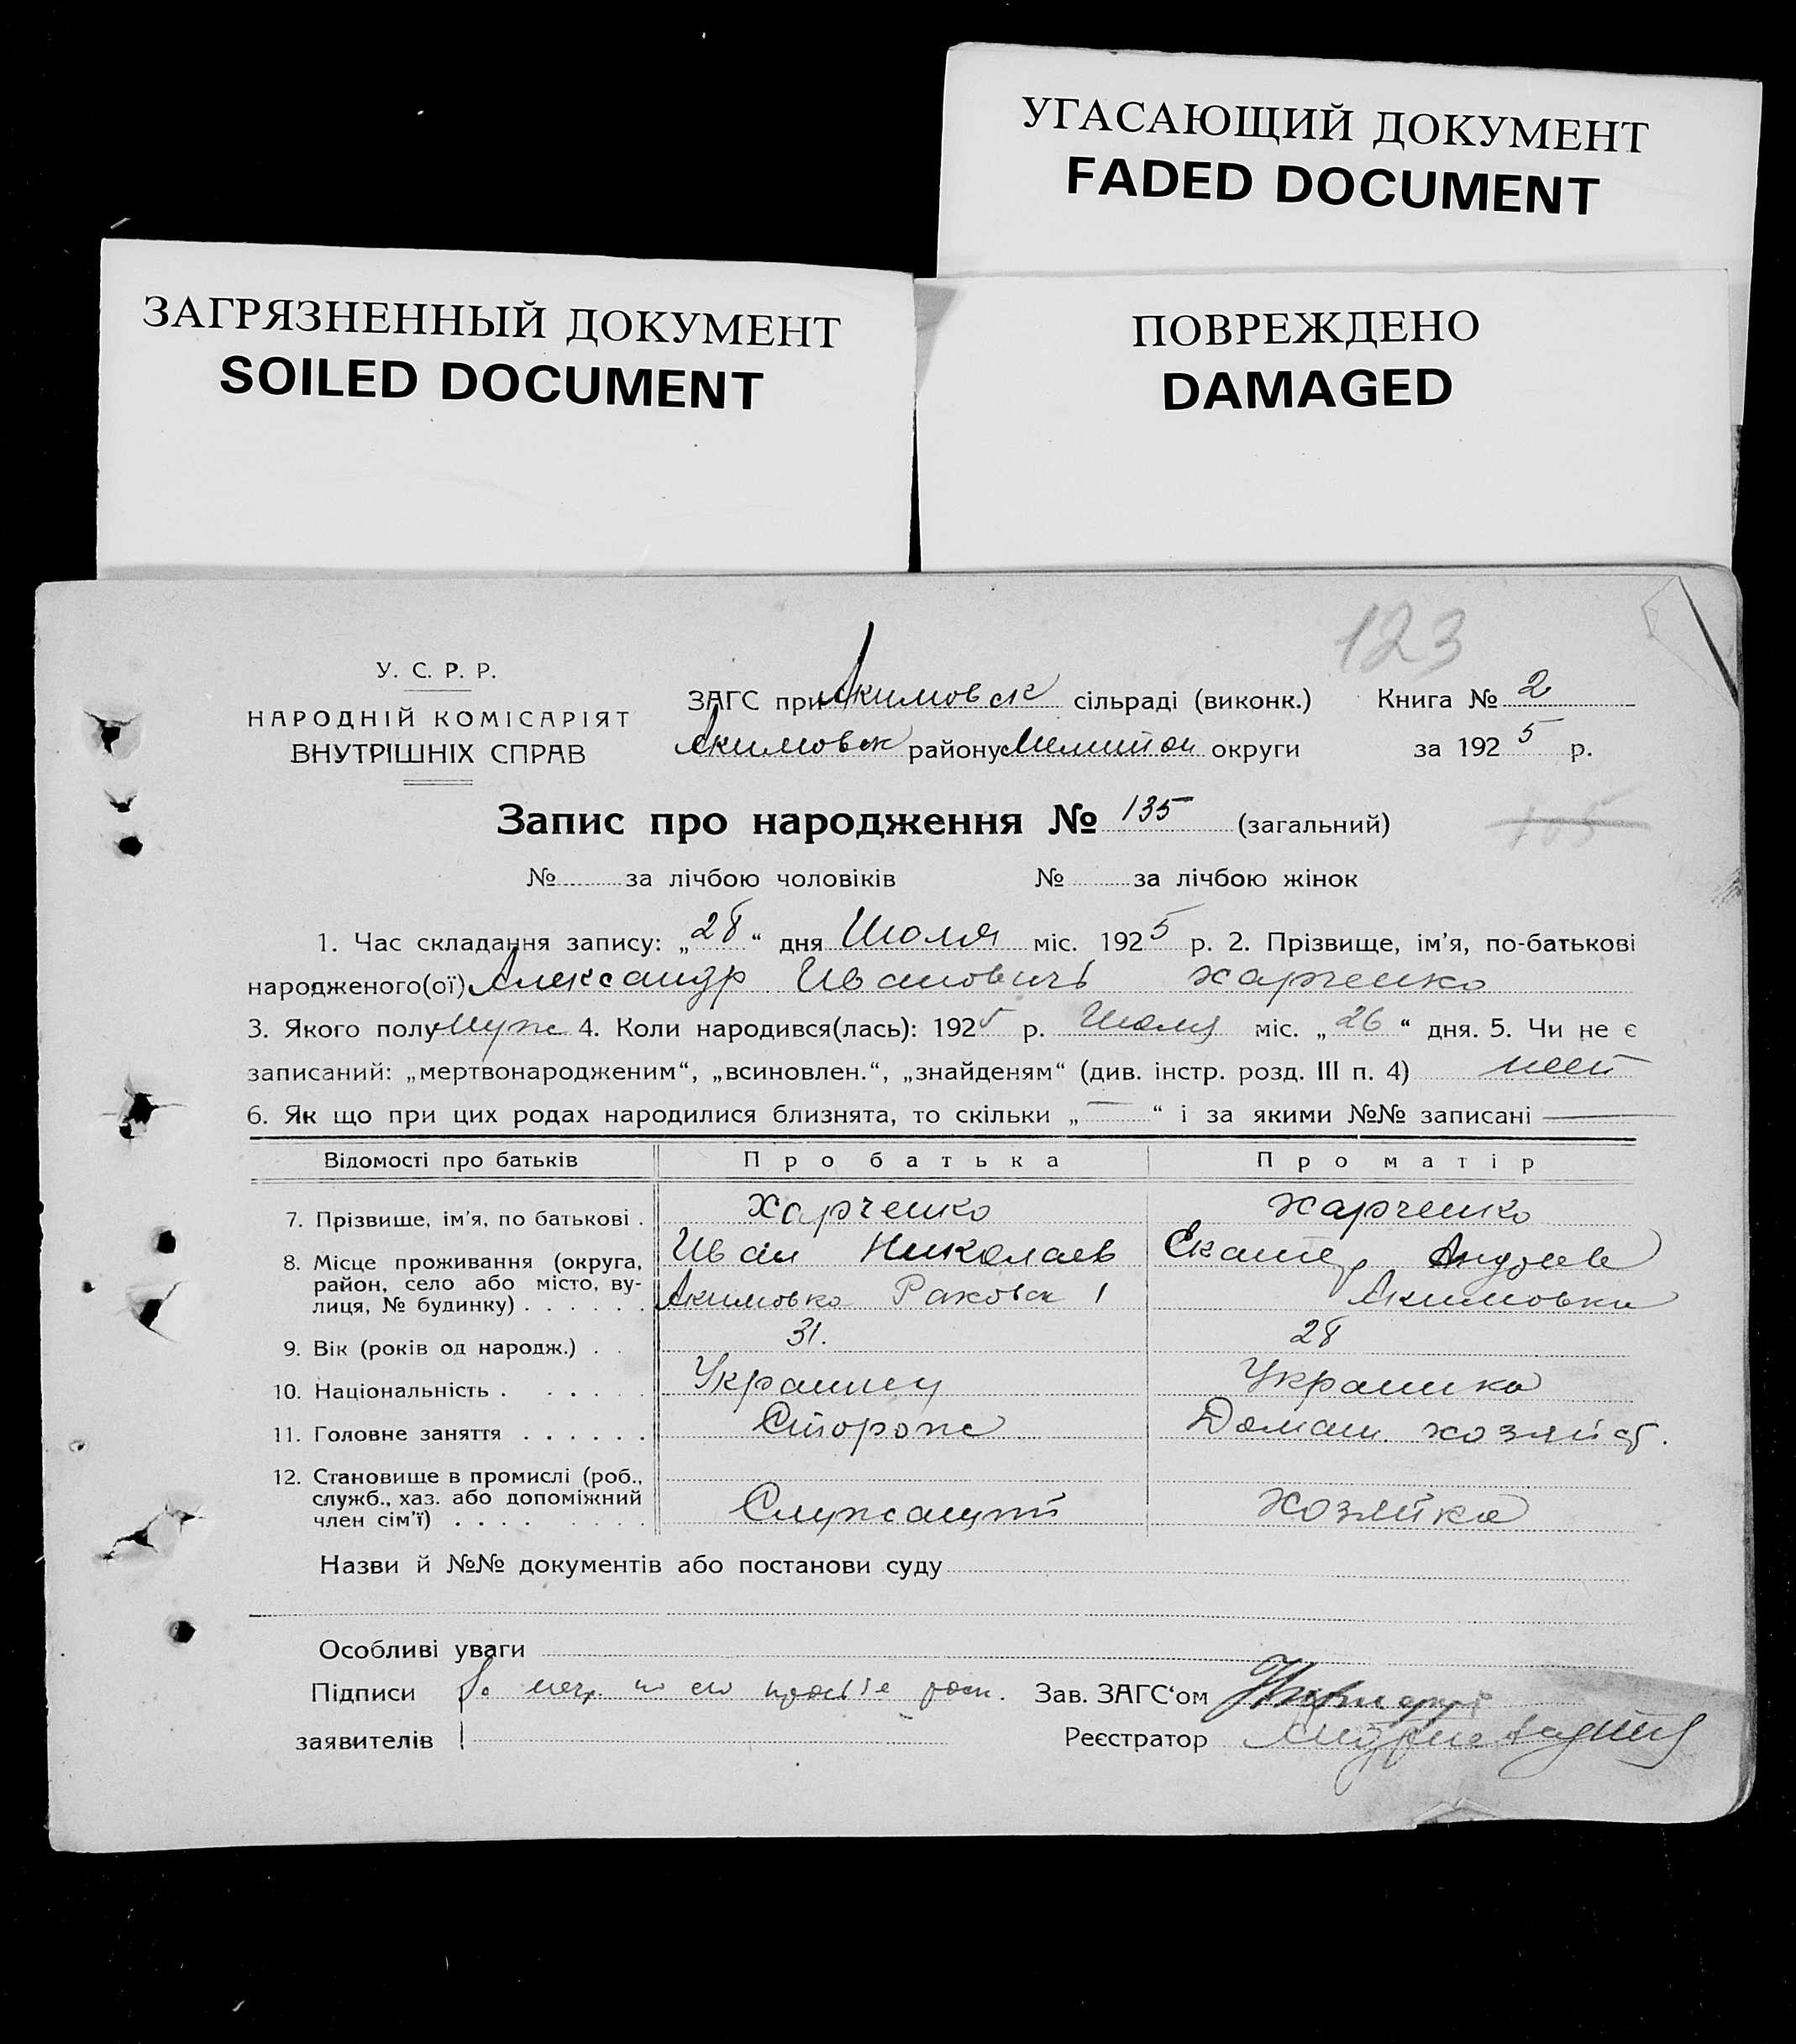 УГАСАЮЩИЙ ДОКУМЕНТ
FADED DOCUMENT
ЗАГРЯЗНЕННЫЙ ДОКУМЕНТ
SOILED DOCUMENT
ПОВРЕЖДЕНО
DAMAGED
123
У. С. Р. Р.
НАРОДНІЙ КОМІСАРІЯТ
ВНУТРІШНІХ СПРАВ
ЗАГС при Акимовск сільраді (виконк.) Книга № 2
Акимовск району Мелитоп округи за 1925 р.
Запис про народження № 135 (загальний)
105
№ за лічбою чоловіків № за лічбою жінок
1. Час складання запису: „28“ дня Июля міс. 1925 р. 2. Прізвище, ім’я, по-батькові
народженого(ої) Александр Иванович Харченко
3. Якого полу Муж 4. Коли народився(лась): 1925 р. Июля міс. „26“ дня. 5. Чи не є
записаний: „мертвонародженим“, „всиновлен.“, „знайденям“ (див. інстр. розд. III п. 4) нет
6. Як що при цих родах народилися близнята, то скільки „—“ і за якими №№ записані —
Відомості про батьків Про батька Про матір
7. Прізвище, ім’я, по батькові . Харченко Харченко
8. Місце проживання (округа, Иван Николаев Екатер Андреев
район, село або місто, ву-
лиця, № будинку) . . . . . . Акимовка Раковск 1 Акимовка
9. Вік (років од народж.) . . 31. 28
10. Національність . . . . . Украинец Украинка
11. Головне заняття . . . . . . Сторож Домаш. хозяйст.
12. Становище в промислі (роб.,
служб., хаз. або допоміжний Служащий Хозяйка
член сім’ї) . . . .
Назви й №№ документів або постанови суду
Особливі уваги
Підписи За негр по его просьбе расп. Зав. ЗАГС‘ом
заявителів Реєстратор